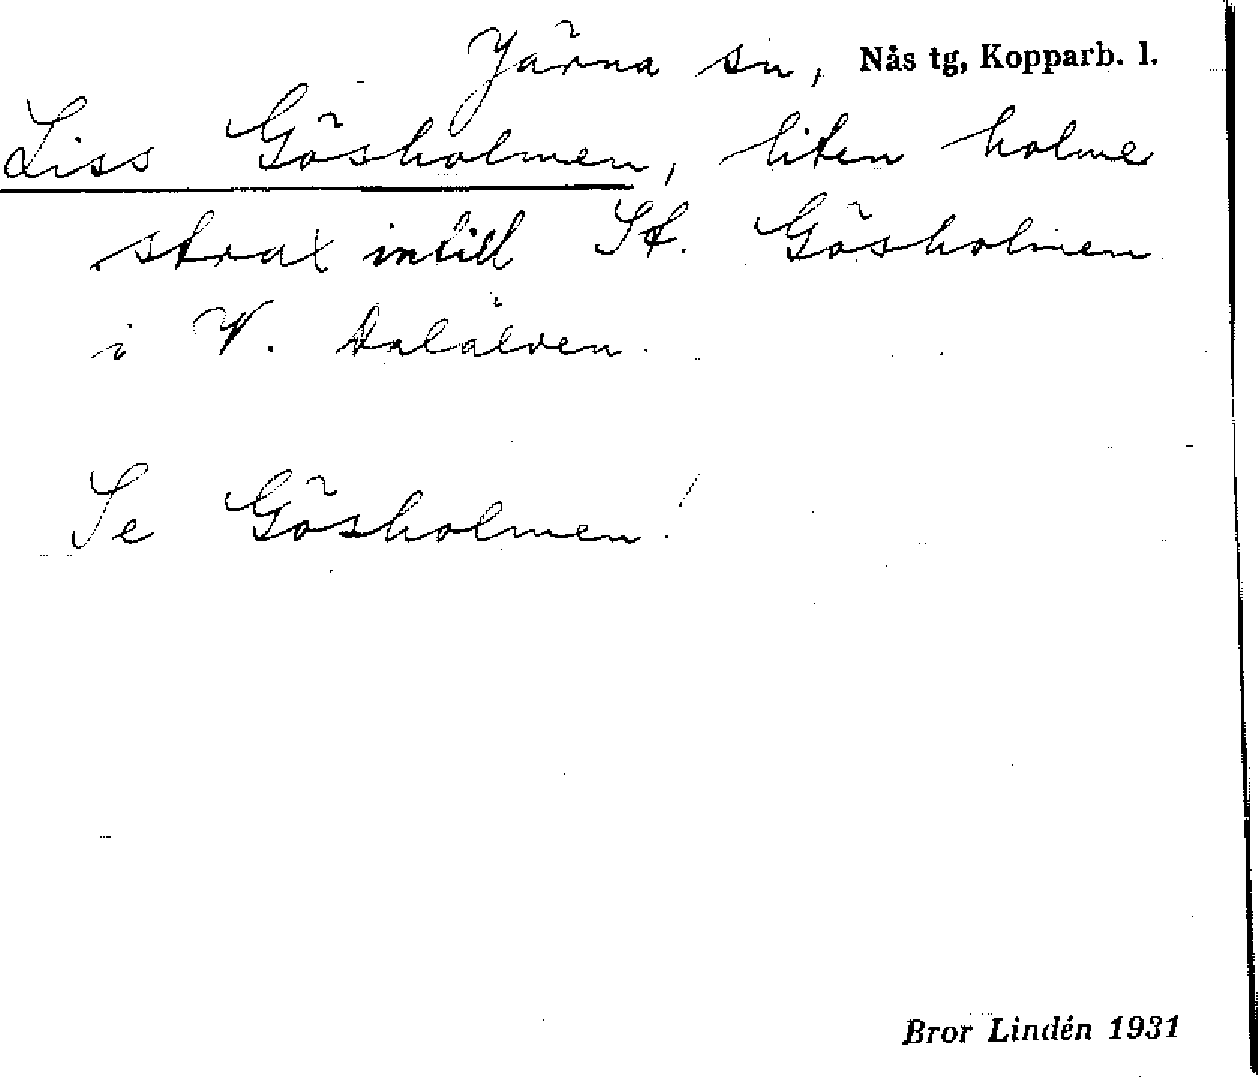 Järna sn, Nås tg, Kopparb. l.
Liss Gösholmen, liten holme
strax intill St. Gösholmen
i V. Dalälven.
Se Gösholmen!
Bror Lindén 1931